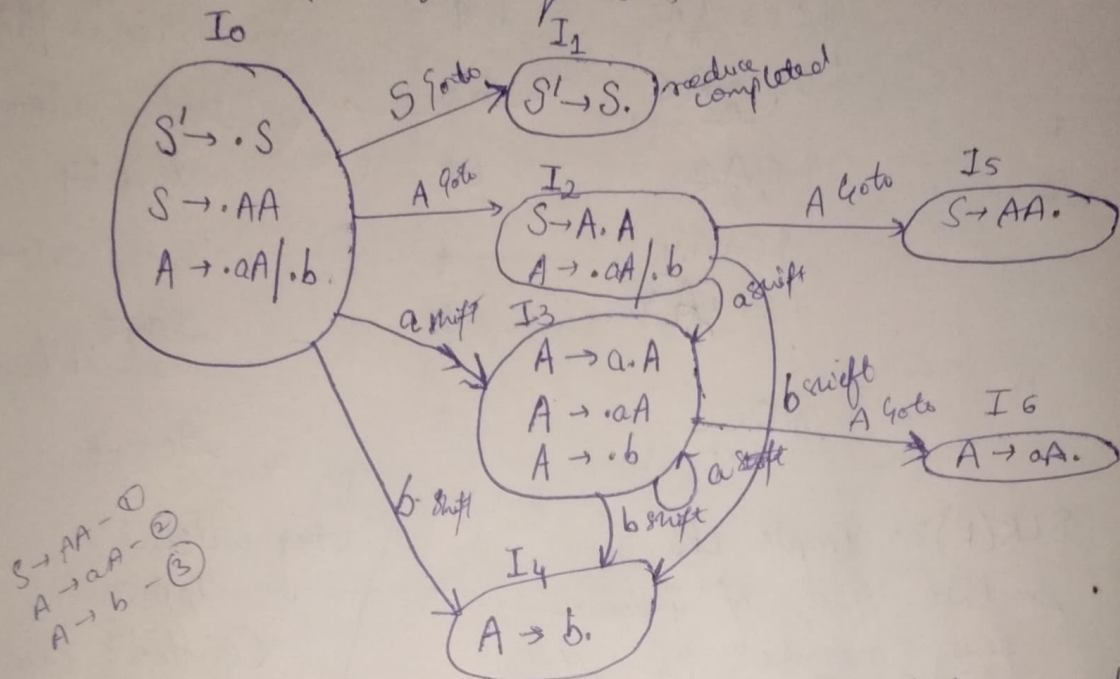 I0
S' → . S
S → . AA
A → . aA / . b
S Goto
I1
S' → S.
reduce
completed
A Goto
I2
S → A. A
A → . aA / . b
A Goto
I5
S → AA.
a shift
I3
A → a.A
A → .aA
A → .b
a shift
b shift
A Goto
I6
A → aA.
a shift
b shift
b shift
I4
A → b.
S → AA - ①
A → aA - ②
A → b - ③